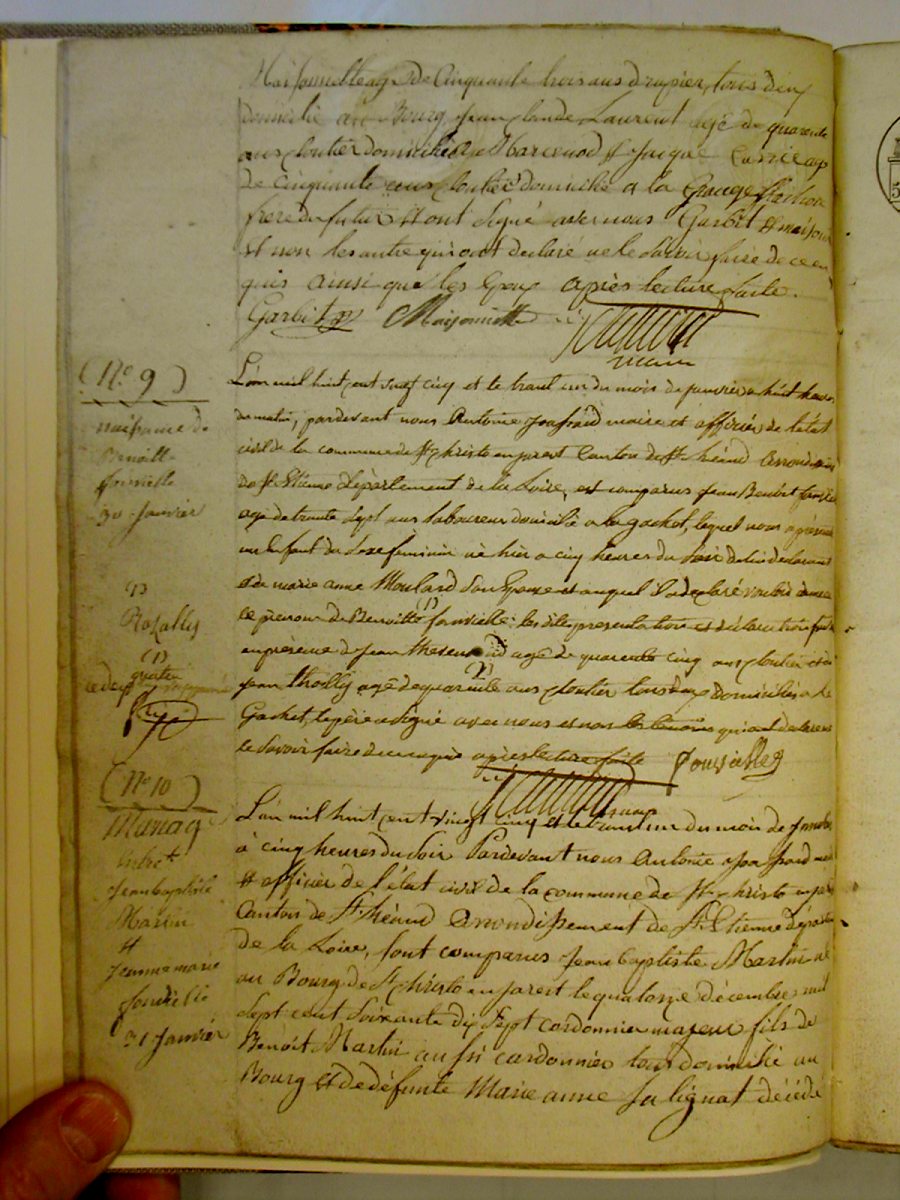 Maisonnette agé de Cinquante trois ans drapier, tous deux
domicilié au Bourg, jean claude Laurent agé de quarante
ans cloutier domicilié a Marcenod et jacque agé
de cinquante ans cloutier domicilié a la
frere du futur et ont Signé avec nous Garbit et maisonn
et non les autre qui ont declaré ne le Savoir faire de ce en
quis ainsi que les Epoux après lecture faite.
Garbit Maisonnette
maire
(N° 9)
naissance de
Benoitte
fonvielle
30 janvier
L'an mil huit cent vingt cinq et le trent un du mois de janvier a huit heures
du matin, pardevant nous Antoine maire et officier de l'état
civil de la commune de St christo en jarest Canton de St héand Arrondis
de St Etienne Département de la Loire, est comparus Jean Benoit
agé de trente Sept ans laboureur domicilié a la gachet, lequel nous a présenté
un Enfant du Sexe féminin né hier a cinq heures du Soir de lui déclarant
et de marie anne Moulard Son Epouse et auquel il a declaré vouloir donner
le prenom de Benoitte (1) fonvielle: les dite presentation et déclaration faite
en présence de Jean agé de quarente cinq ans cloutier et de
jean tholly agé de quarente ans (2) cloutier tous deux domiciliés a la
Gachet, le père a Signé avec nous et non les temoins qui ont declaré ne
le Savoir faire de ce requis après lecture faite
(1)
(1)
(N° 10)
Mariage
entre
jean baptiste
Martin
et
jeanne marie
fonvielle
31 janvier
L'an mil huit cent vingt cinq et le trent un du mois de janvier
à cinq heures du Soir Pardevant nous Antoine maire
et officier de l'état civil de la commune de St christo en jarest
Canton de St héand Arrondissement de St Etienne Départem
de la Loire, Sont comparus Jean baptiste Martin né
au Bourg de St christo en jarest le quatorze décembre mil
Sept cent Soixante dix Sept cordonnier majeur fils de
Benoit Martin aussi cordonnier tous domicilié au
Bourg et de défunte Marie anne décédé